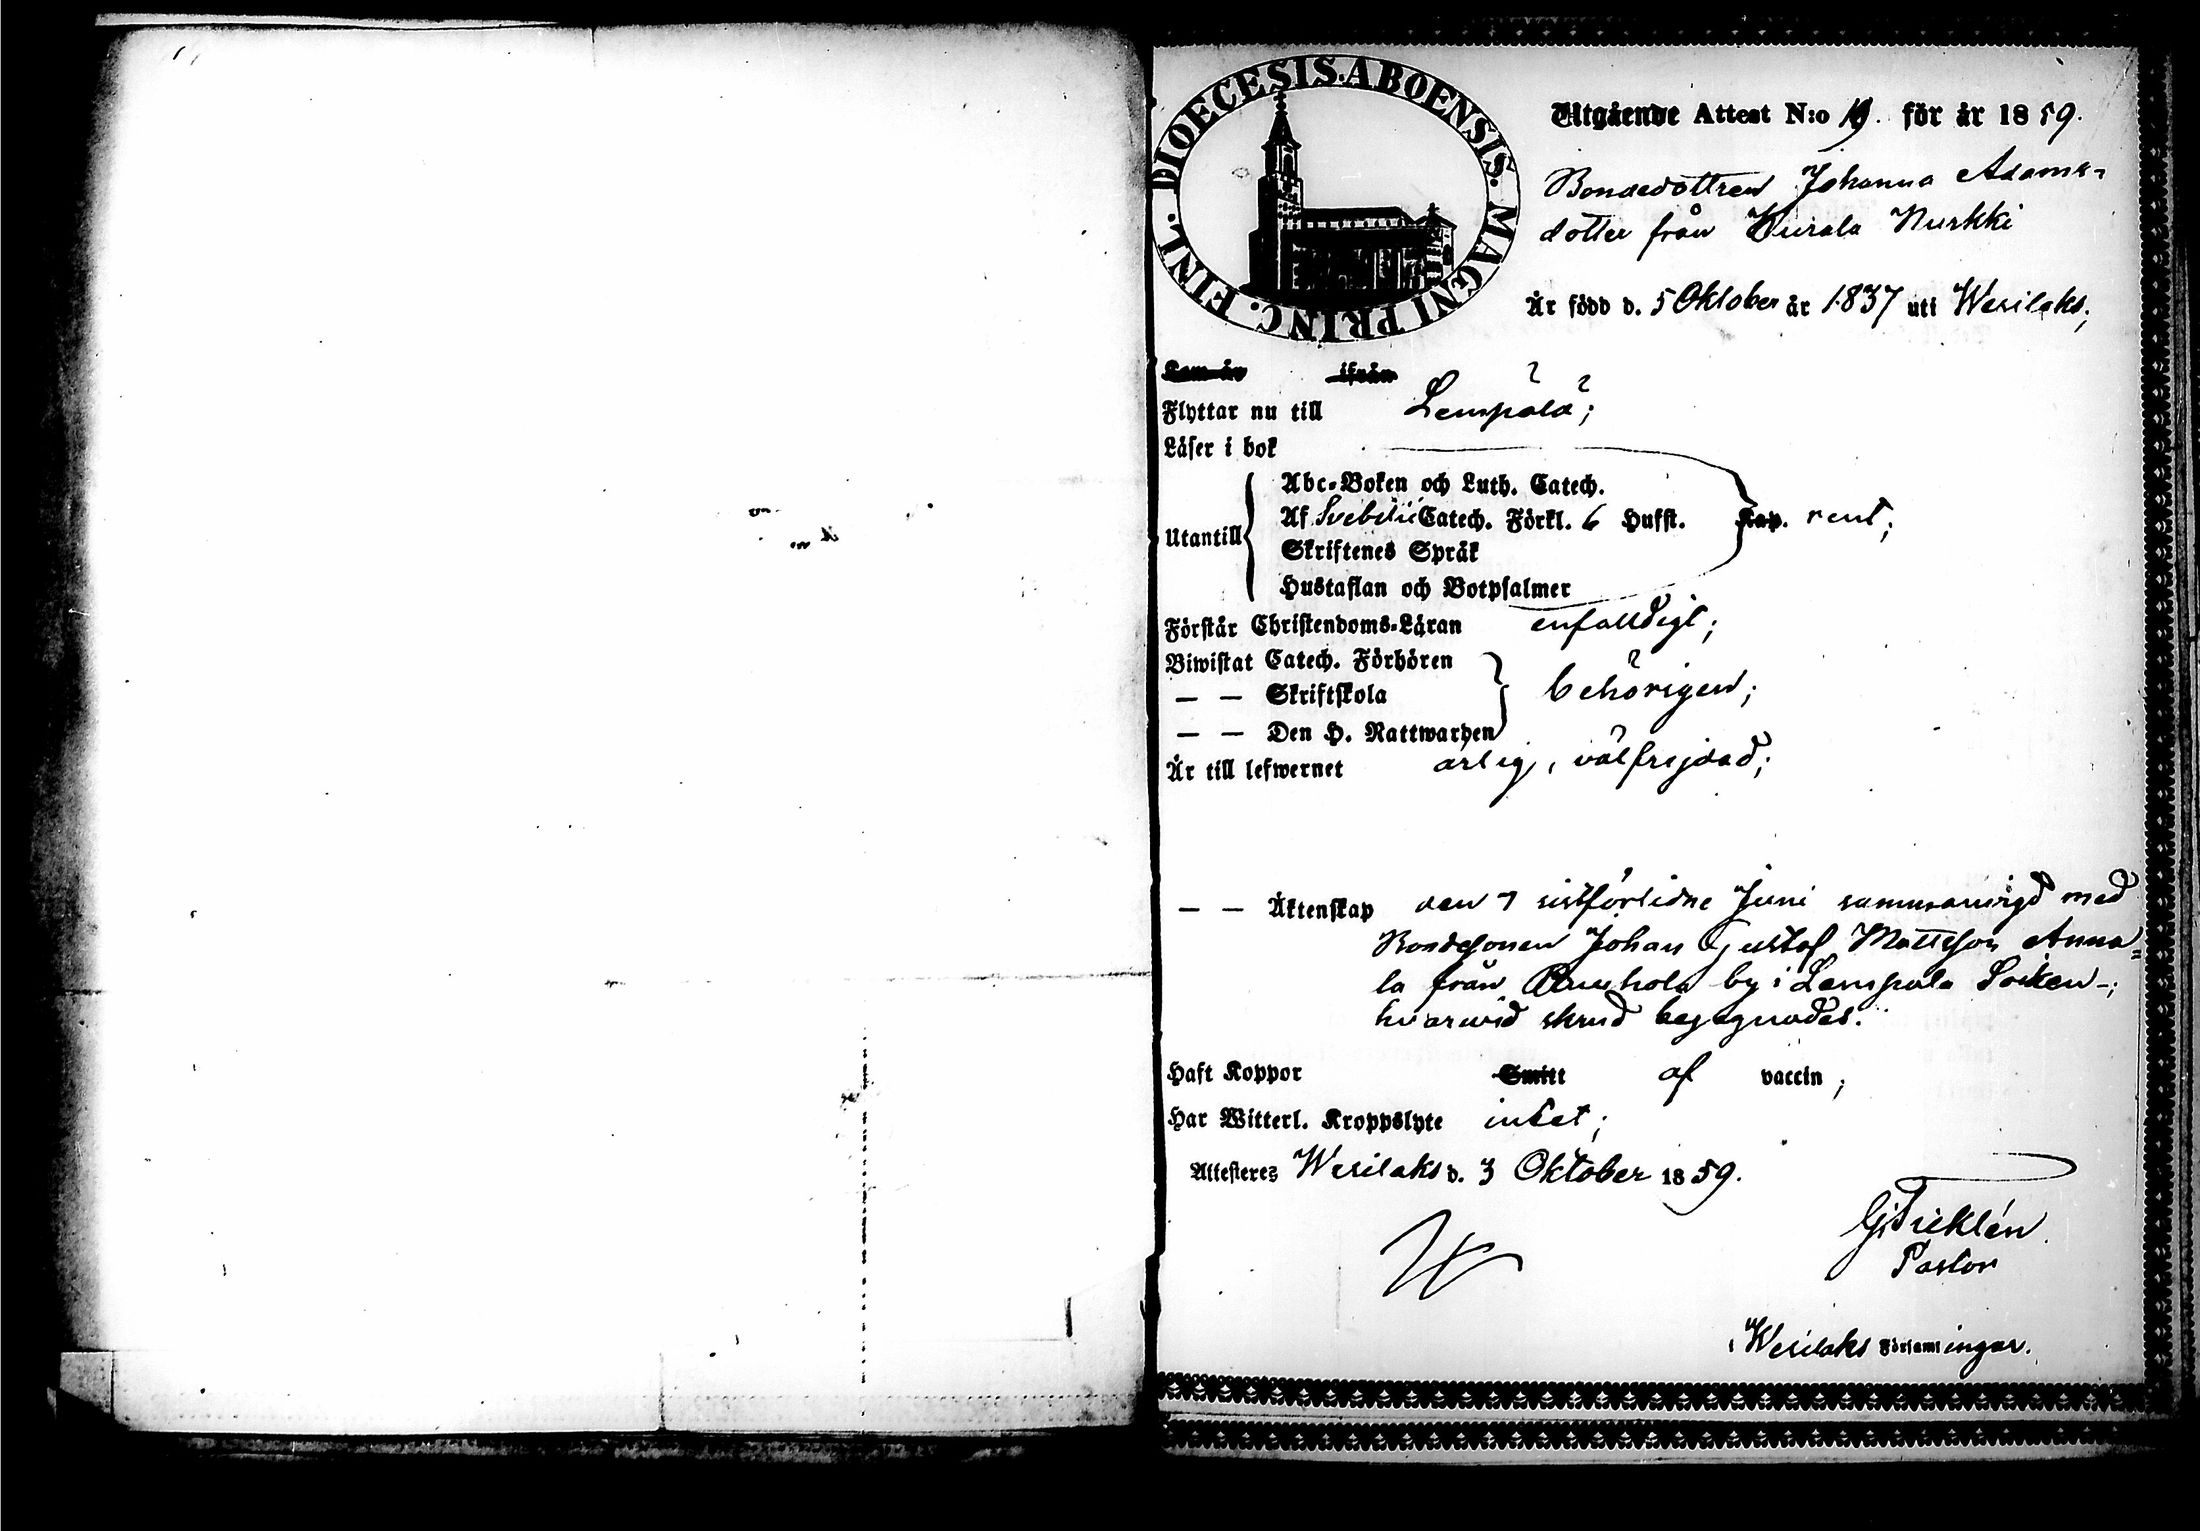 DIOECESIS. ABOENSIS. MAGNI PRINC. FINL.
Utgående Attest N:o 19. för år 1859.
Bondedottren Johanna Adams-
dotter från Kurala Nurkki
Är född d. 5 Oktober år 1837 uti Wesilaks;
Kom år ifrån
Flyttar nu till Lempälä;
Läser i bok
Utantill
Abc-Boken och Luth. Catech.
Af Svebilii Catech. Förkl. 6 Hufst. Kap. rent;
Skriftenes Språk
Hustaflan och Botpsalmer
Förstår Christendoms-Läran enfaldigt;
Biwistat Catech. Förhören
— — Skriftskola behörigen;
— — Den H. Nattwarden
Är till lefwernet ärlig, välfrejdad;
— — Äktenskap den 7 sistförlidne Juni sammanvigd med
Bondesonen Johan Gustaf Mattsson Anna-
la från by i Lempälä Socken-;
hvarvid skrud begagnades.
Haft Koppor Smitt af vaccin;
Har Witterl. Kroppslyte intet;
Attesteres Wesilaks d. 3 Oktober 1859.
G. Fricklén.
Pastor
i Wesilaks Församlingar.